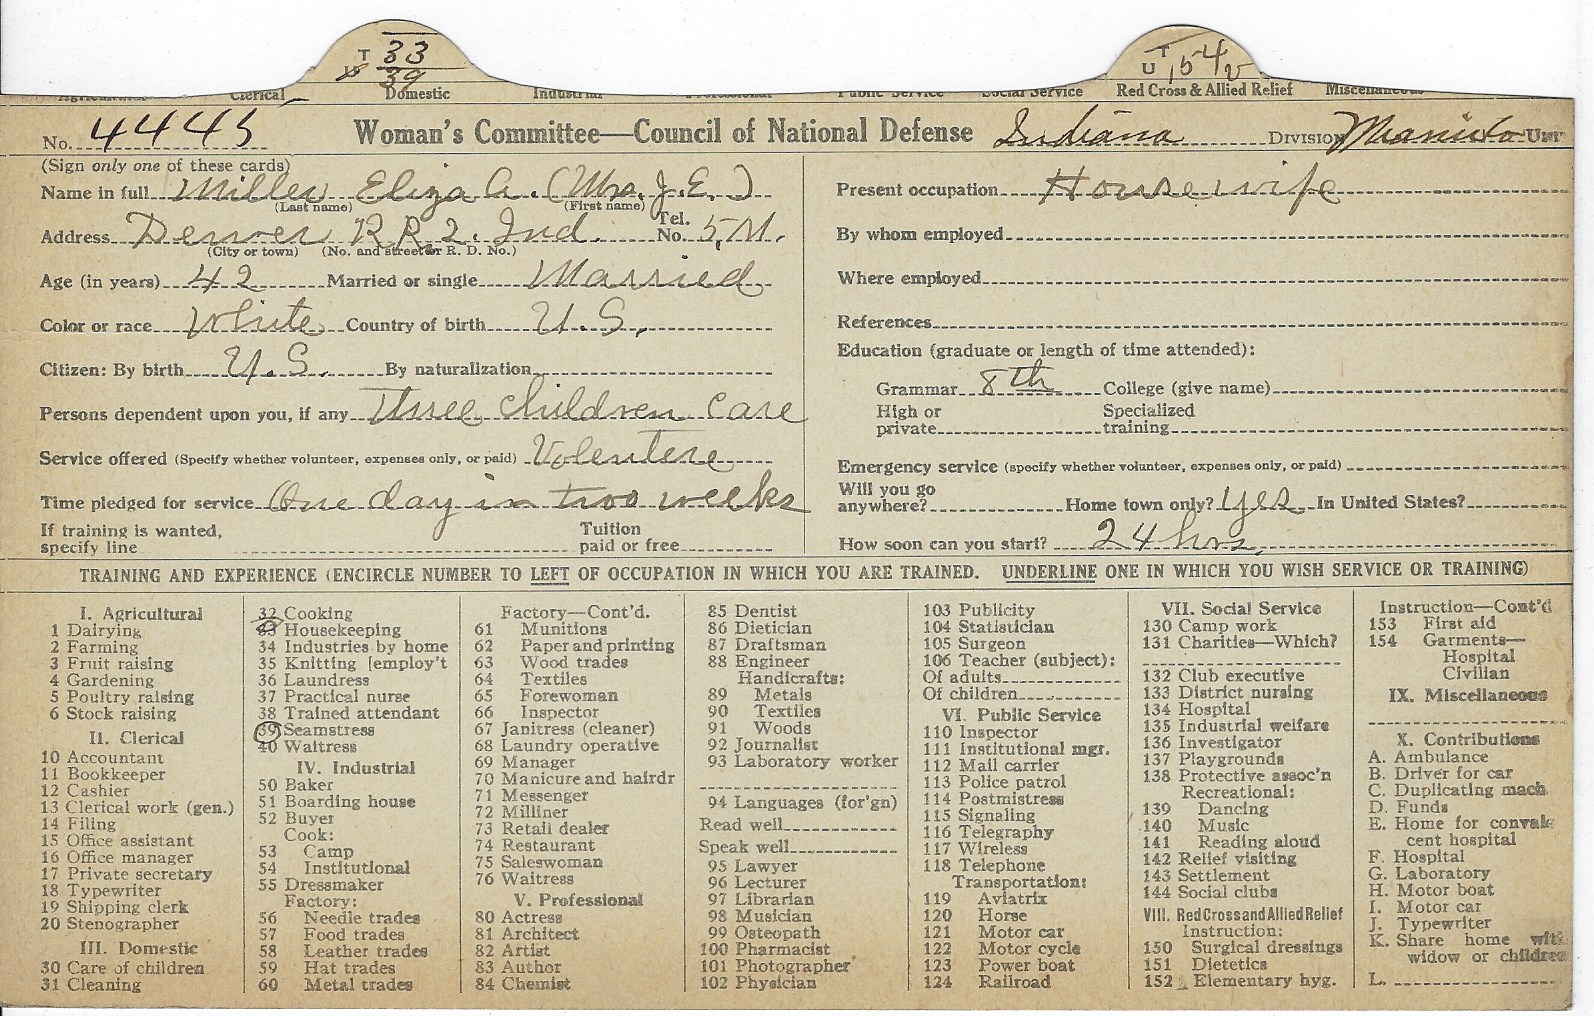 T 33
39
T
U 154
Clerical Domestic Industrial Professional Public Service Social Service Red Cross & Allied Relief Miscellaneous
No. 4445 Woman's Committee—Council of National Defense Indiana DIVISION UNIT
(Sign only one of these cards)
Name in full Miller Eliza A. (Mrs. J. E.)
(Last name) (First name)
Address Denver R R 2. Ind. Tel. No. 5, M.
(City or town) (No. and street or R. D. No.)
Age (in years) 42 Married or single Married
Color or race White Country of birth U. S.
Citizen: By birth U. S. By naturalization
Persons dependent upon you, if any Three children care
Service offered (Specify whether volunteer, expenses only, or paid) Volentere
Time pledged for service One day in two weeks
If training is wanted, specify line Tuition paid or free
Present occupation Housewife
By whom employed
Where employed
References
Education (graduate or length of time attended):
Grammar 8th College (give name)
High or private Specialized training
Emergency service (specify whether volunteer, expenses only, or paid)
Will you go anywhere? Home town only? Yes In United States?
How soon can you start? 24 hrs.
TRAINING AND EXPERIENCE (ENCIRCLE NUMBER TO LEFT OF OCCUPATION IN WHICH YOU ARE TRAINED. UNDERLINE ONE IN WHICH YOU WISH SERVICE OR TRAINING)
I. Agricultural
1 Dairying
2 Farming
3 Fruit raising
4 Gardening
5 Poultry raising
6 Stock raising
II. Clerical
10 Accountant
11 Bookkeeper
12 Cashier
13 Clerical work (gen.)
14 Filing
15 Office assistant
16 Office manager
17 Private secretary
18 Typewriter
19 Shipping clerk
20 Stenographer
III. Domestic
30 Care of children
31 Cleaning
32 Cooking
33 Housekeeping
34 Industries by home
35 Knitting [employ't
36 Laundress
37 Practical nurse
38 Trained attendant
39 Seamstress
40 Waitress
IV. Industrial
50 Baker
51 Boarding house
52 Buyer
Cook:
53 Camp
54 Institutional
55 Dressmaker
Factory:
56 Needle trades
57 Food trades
58 Leather trades
59 Hat trades
60 Metal trades
Factory—Cont'd.
61 Munitions
62 Paper and printing
63 Wood trades
64 Textiles
65 Forewoman
66 Inspector
67 Janitress (cleaner)
68 Laundry operative
69 Manager
70 Manicure and hairdr
71 Messenger
72 Milliner
73 Retail dealer
74 Restaurant
75 Saleswoman
76 Waitress
V. Professional
80 Actress
81 Architect
82 Artist
83 Author
84 Chemist
85 Dentist
86 Dietician
87 Draftsman
88 Engineer
Handicrafts:
89 Metals
90 Textiles
91 Woods
92 Journalist
93 Laboratory worker
94 Languages (for'gn)
Read well
Speak well
95 Lawyer
96 Lecturer
97 Librarian
98 Musician
99 Osteopath
100 Pharmacist
101 Photographer
102 Physician
103 Publicity
104 Statistician
105 Surgeon
106 Teacher (subject):
Of adults
Of children
VI. Public Service
110 Inspector
111 Institutional mgr.
112 Mail carrier
113 Police patrol
114 Postmistress
115 Signaling
116 Telegraphy
117 Wireless
118 Telephone
Transportation:
119 Aviatrix
120 Horse
121 Motor car
122 Motor cycle
123 Power boat
124 Railroad
VII. Social Service
130 Camp work
131 Charities—Which?
132 Club executive
133 District nursing
134 Hospital
135 Industrial welfare
136 Investigator
137 Playgrounds
138 Protective assoc'n
Recreational:
139 Dancing
140 Music
141 Reading aloud
142 Relief visiting
143 Settlement
144 Social clubs
VIII. Red Cross and Allied Relief
Instruction:
150 Surgical dressings
151 Dietetics
152 Elementary hyg.
Instruction—Cont'd
153 First aid
154 Garments—
Hospital
Civilian
IX. Miscellaneous
X. Contributions
A. Ambulance
B. Driver for car
C. Duplicating mach.
D. Funds
E. Home for convalescent hospital
F. Hospital
G. Laboratory
H. Motor boat
I. Motor car
J. Typewriter
K. Share home with
widow or children
L.